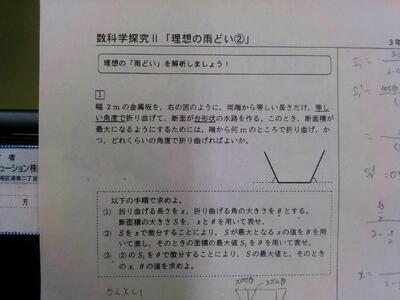 数科学探究Ⅱ「理想の雨どい②」
3年
理想の「雨どい」を解析しましょう!
1
幅2mの金属板を,右の図のように,両端から等しい長さだけ,等し
い角度で折り曲げて,断面が台形状の水路を作る。このとき,断面積が
最大になるようにするためには,端から何mのところで折り曲げれ,か
つ,どれくらいの角度で折り曲げればよいか。
以下の手順で求めよ。
(1) 折り曲げる長さをx,折り曲げる角の大きさをθとする。
断面積の大きさSを,xとθを用いて表せ。
(2) Sをxで微分することにより,Sが最大となるxの値をθを用
いて表し,そのときの面積の最大値S₁をθを用いて表せ。
(3) (2)のS₁をθで微分することにより,Sの最大値と,そのとき
のx,θの値を求めよ。
者
ーション株
港区港南二丁目
月
0<x<1
xcosθ